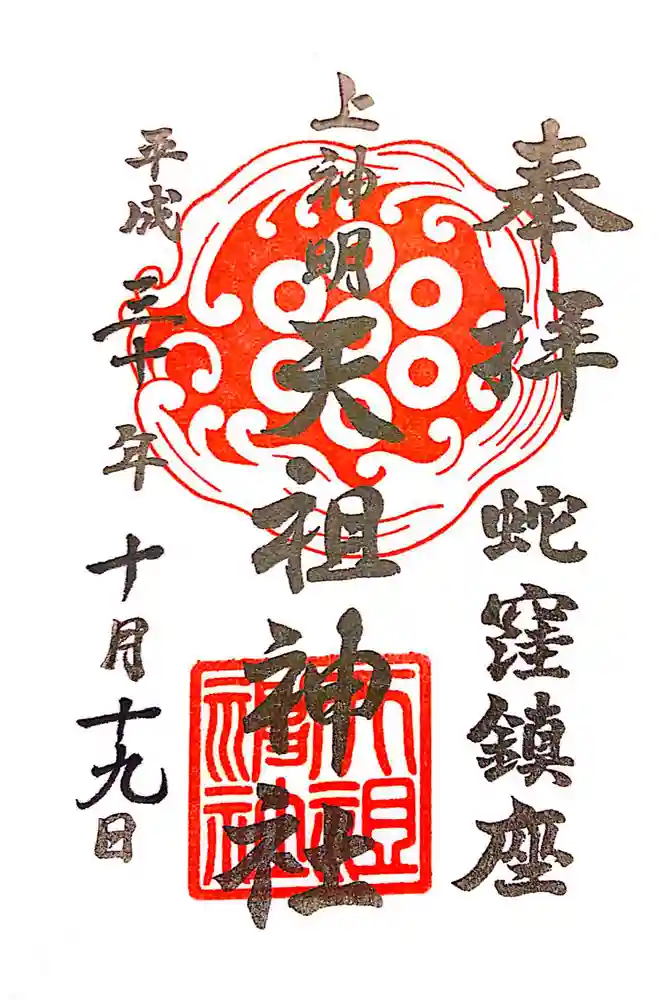 奉拝
蛇窪鎮座
上神明
天祖神社
天祖神社
平成三十年十月十九日